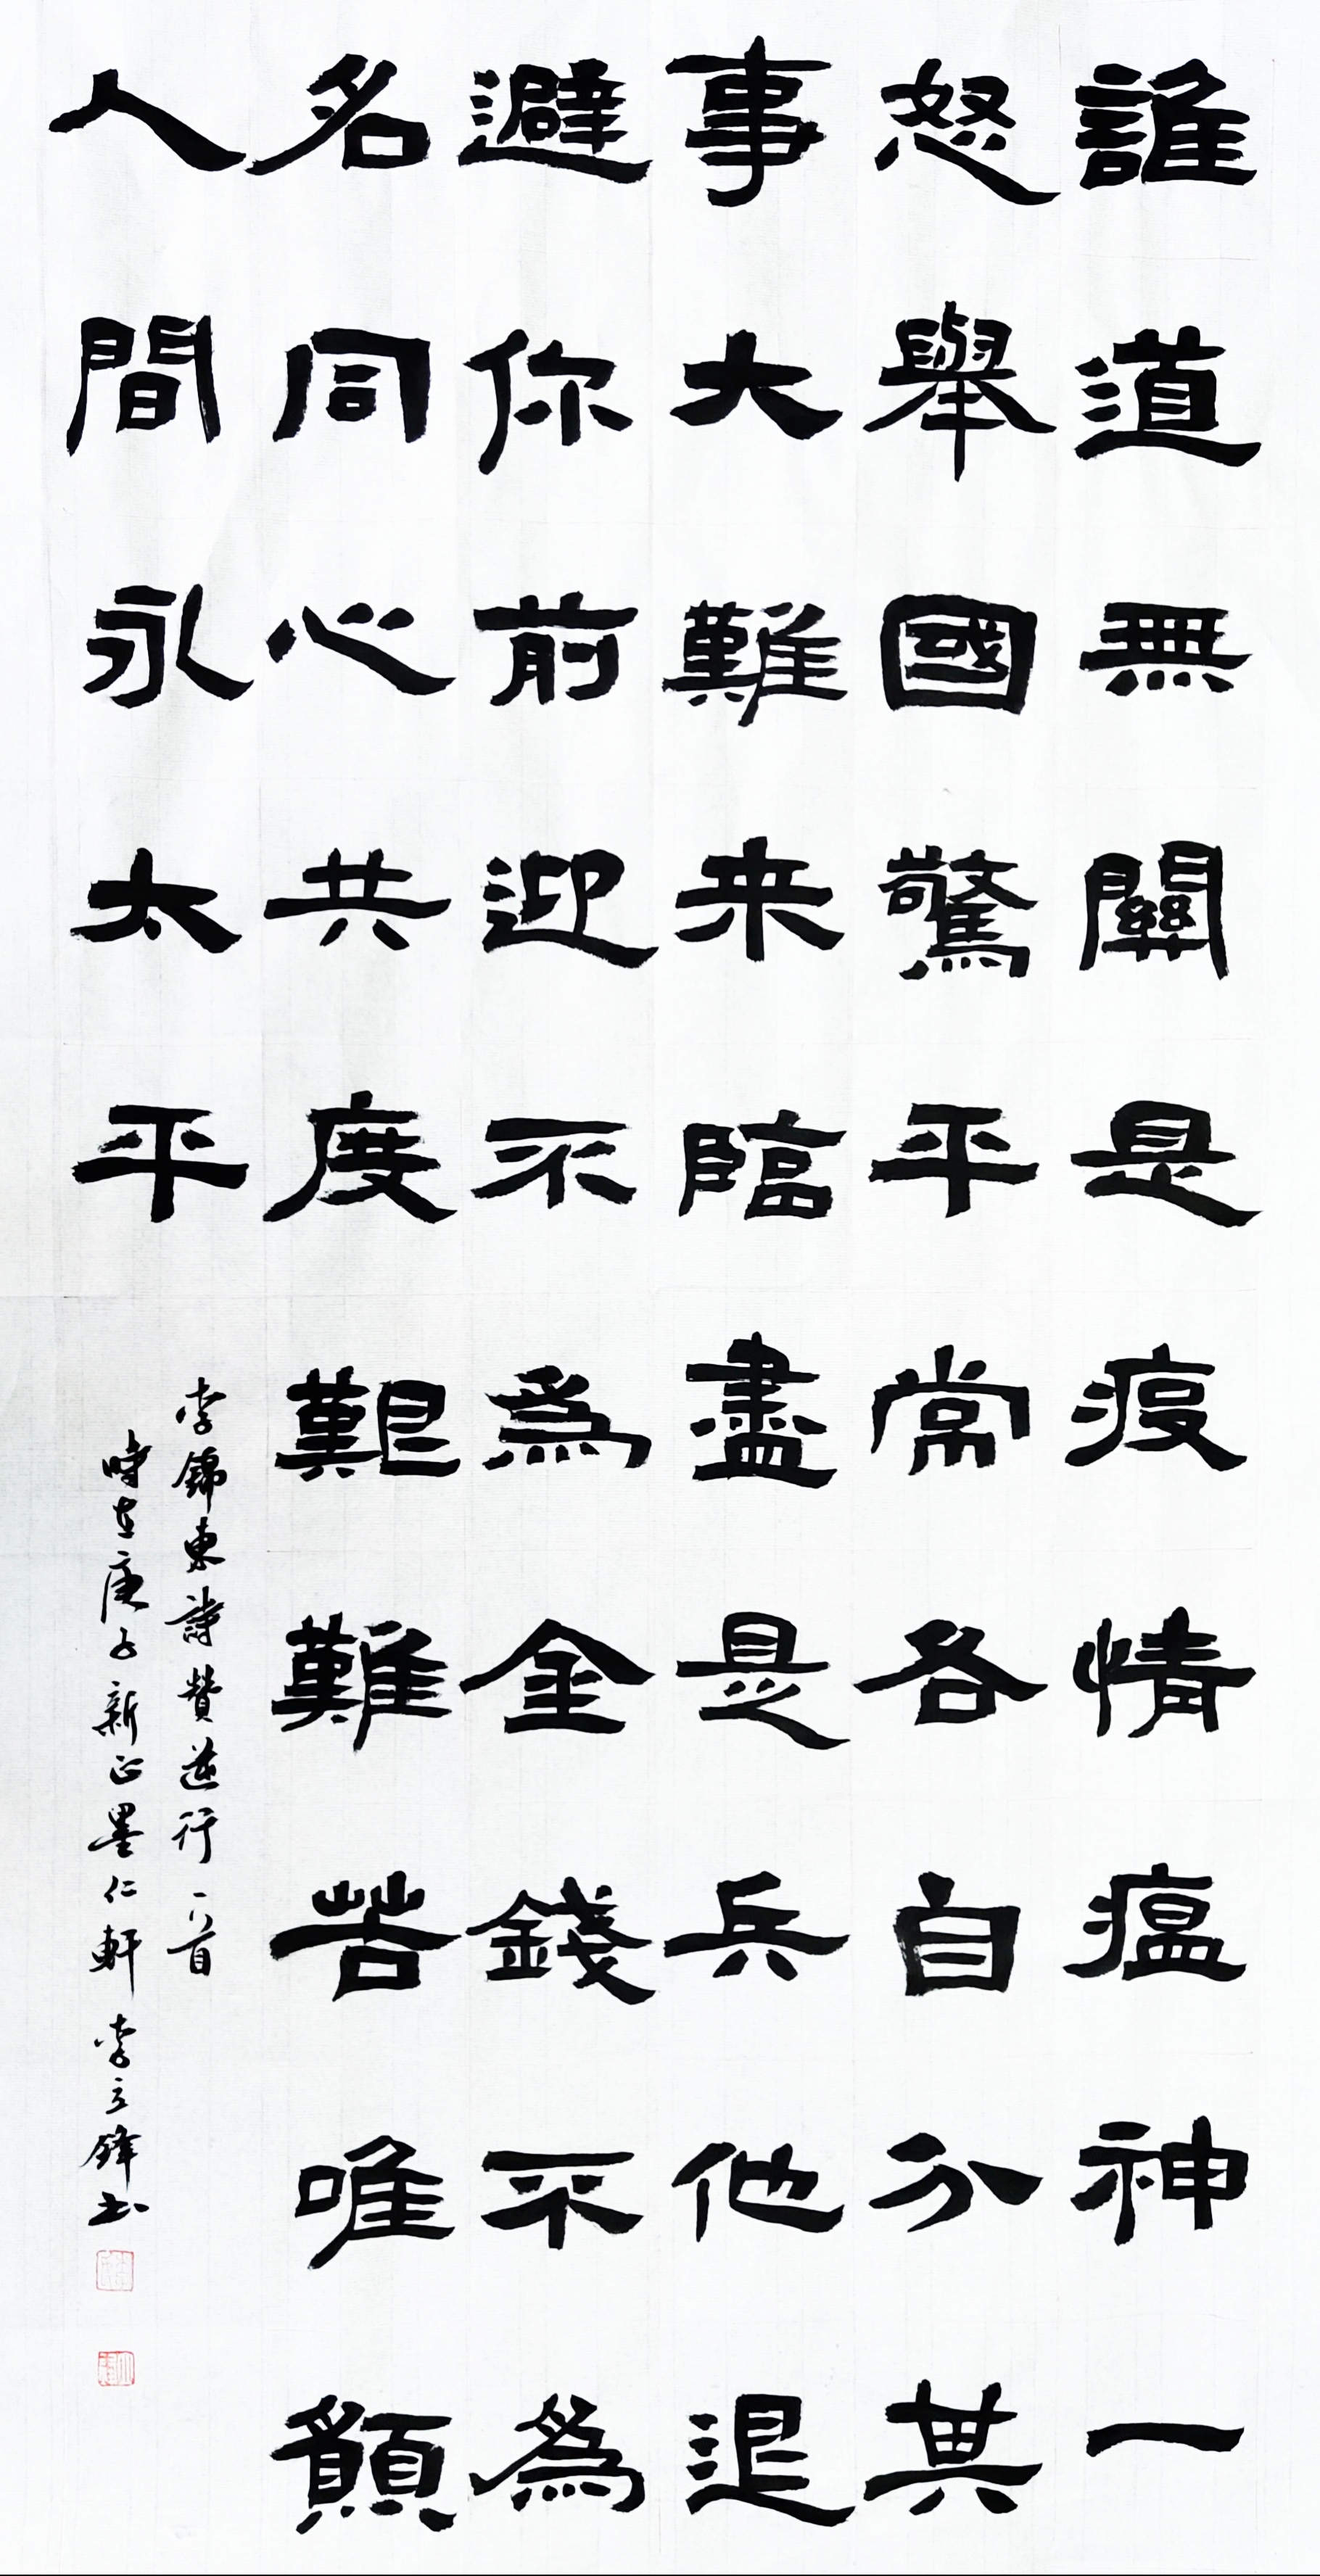 誰道無關是疫情瘟神一
怒舉國驚平常各自分其
事大難来臨盡是兵他退
避你前迎不為金錢不為
名同心共度艱難苦唯願
人間永太平
李錦東詩贊逆行一首
時在庚子新正墨仁軒李立鋒書